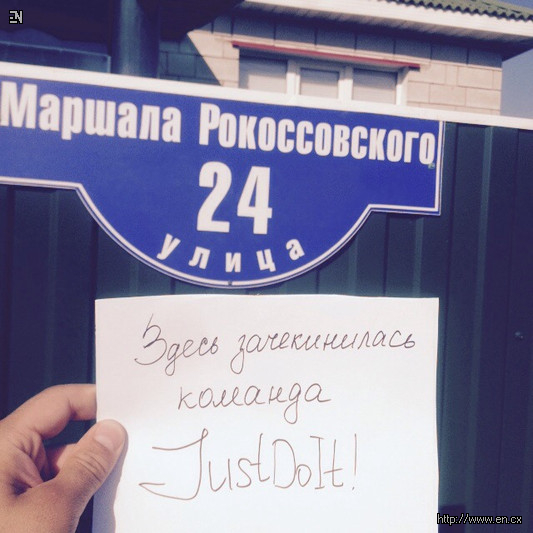 EN
Маршала Рокоссовского
24
улица
Здесь зачекинилась
команда
JustDoIt!
http://www.en.cx